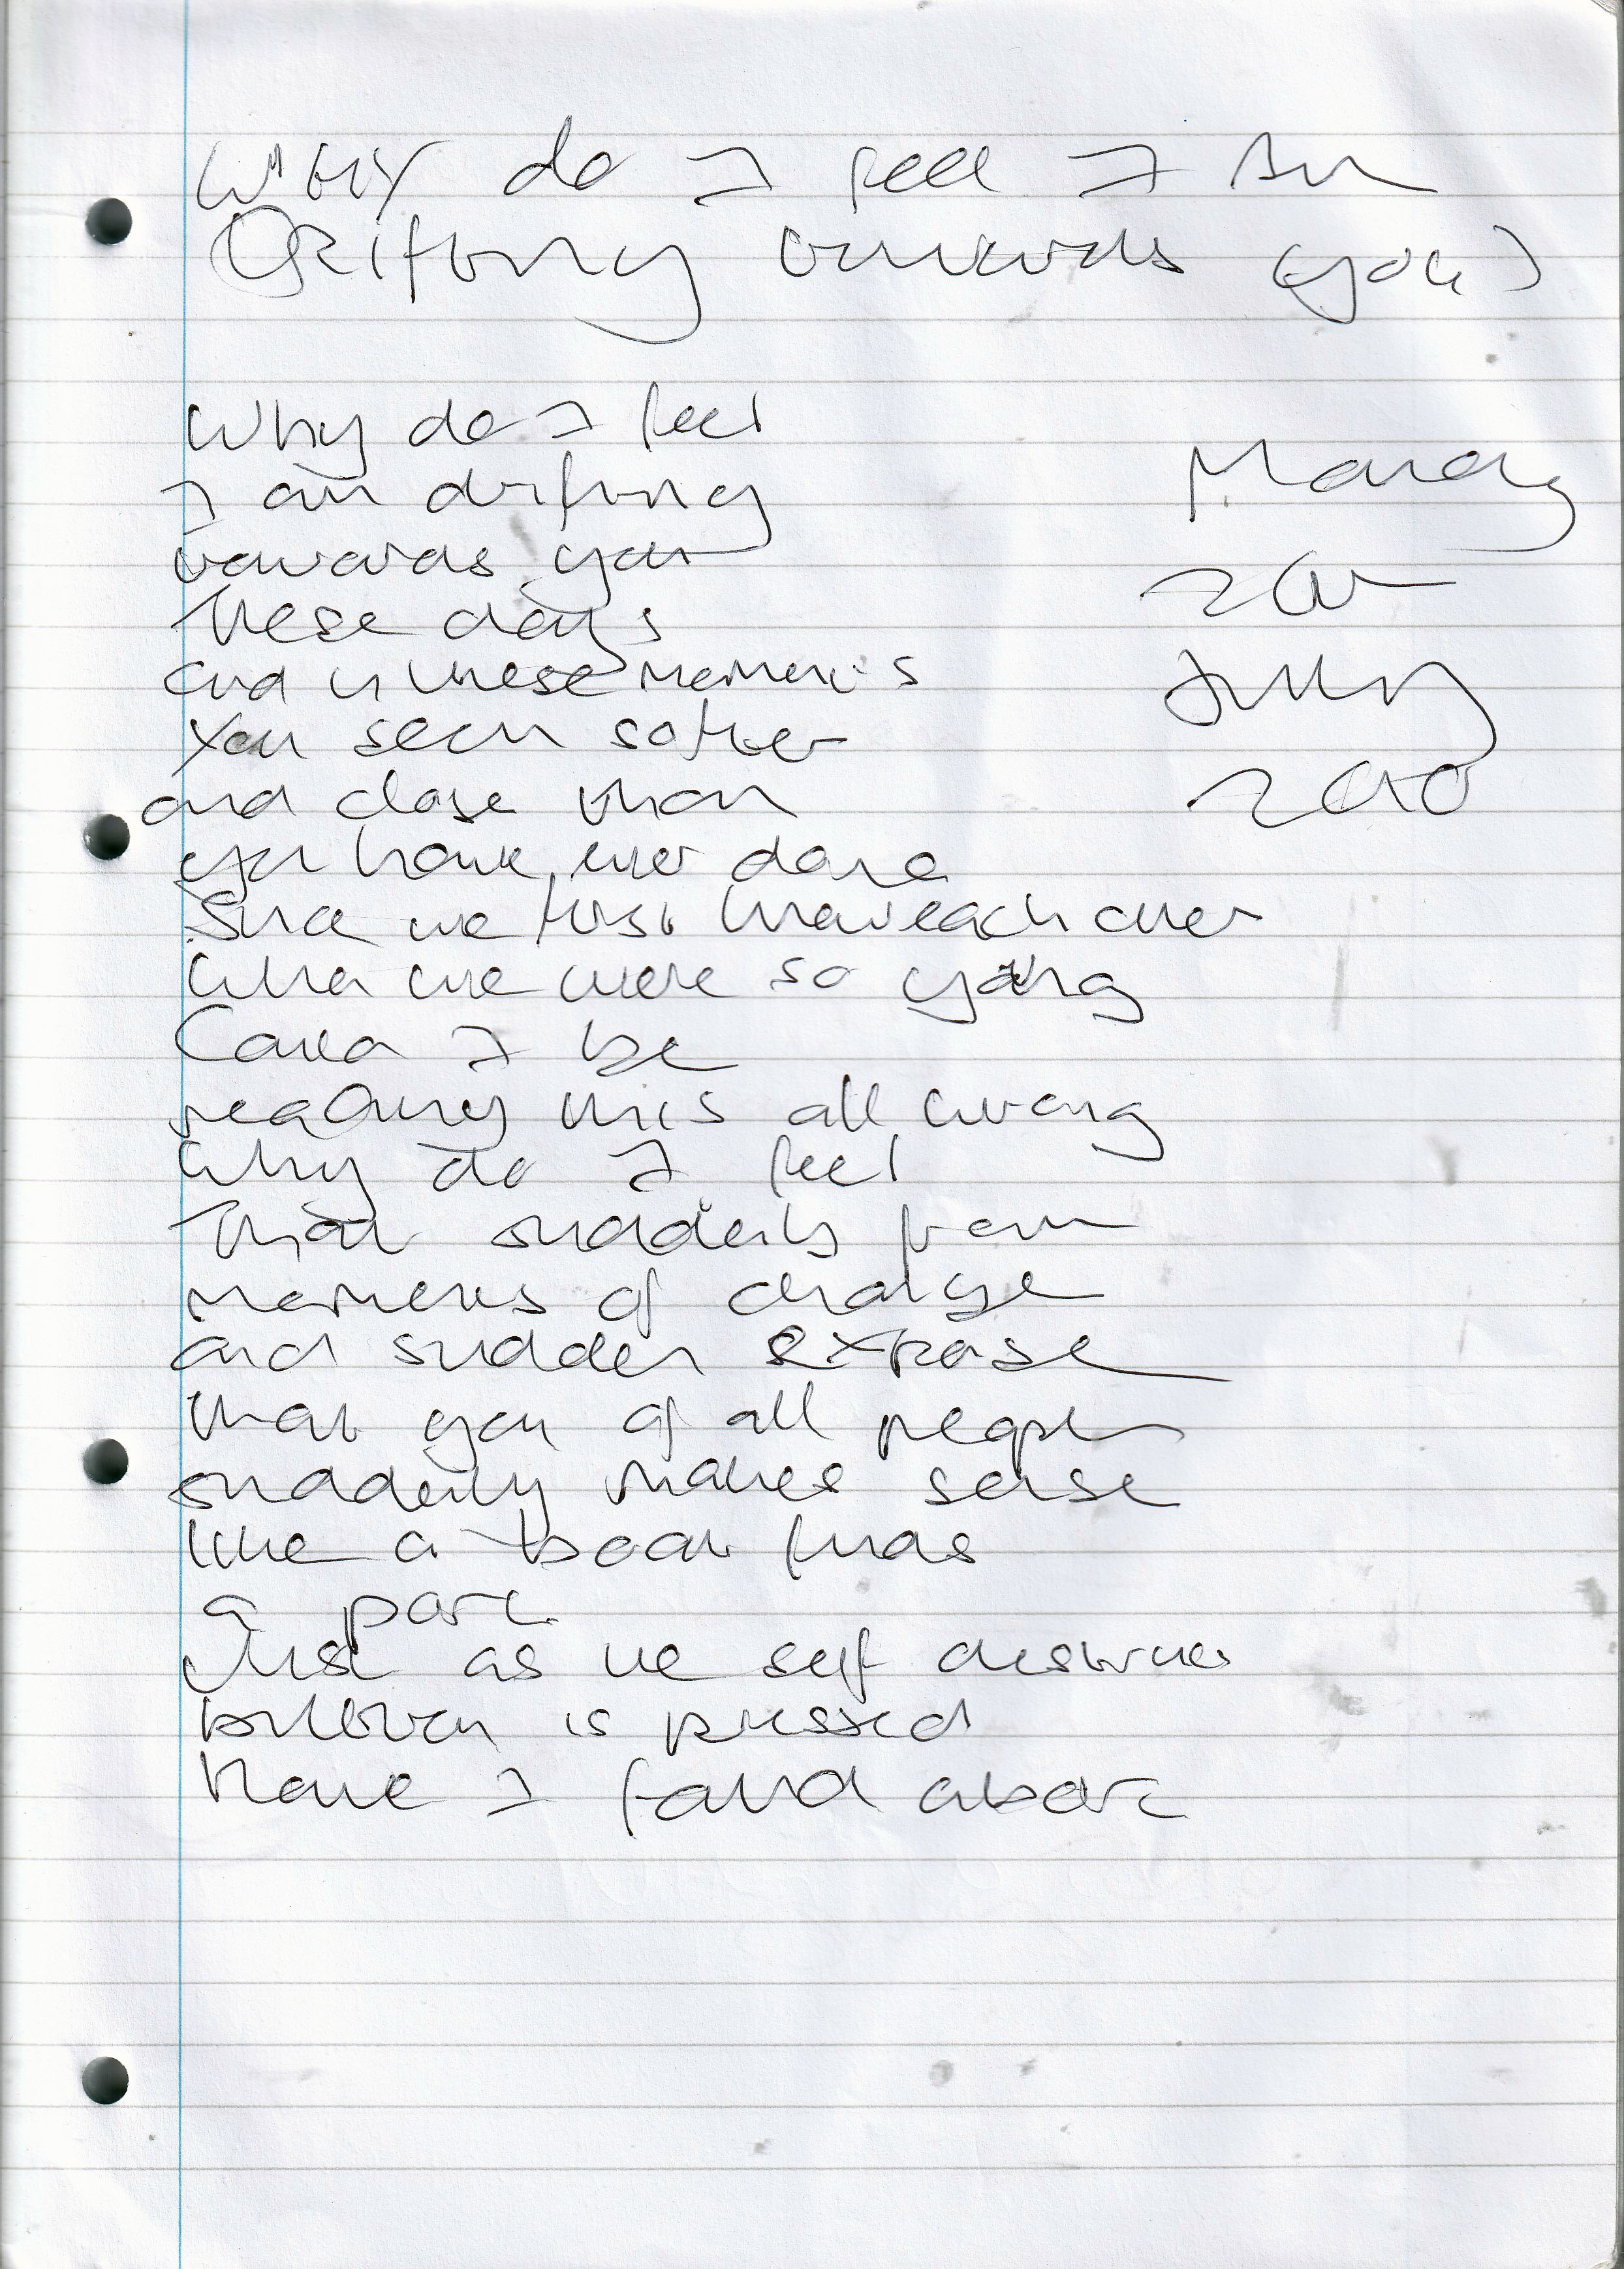 Why do I feel I am
Drifting towards you?
Why do I feel
I am drifting
towards you
These days
and in these moments
You seem softer
and close than
you have ever done
Since we first knew each other
When we were so young
Could I be
reading this all wrong
Why do I feel
That suddenly from
moments of change
and sudden expanse
that you of all people
suddenly makes sense
like a boat finds
a port
Just as the self destruct
button is pressed
Have I found
Monday
July